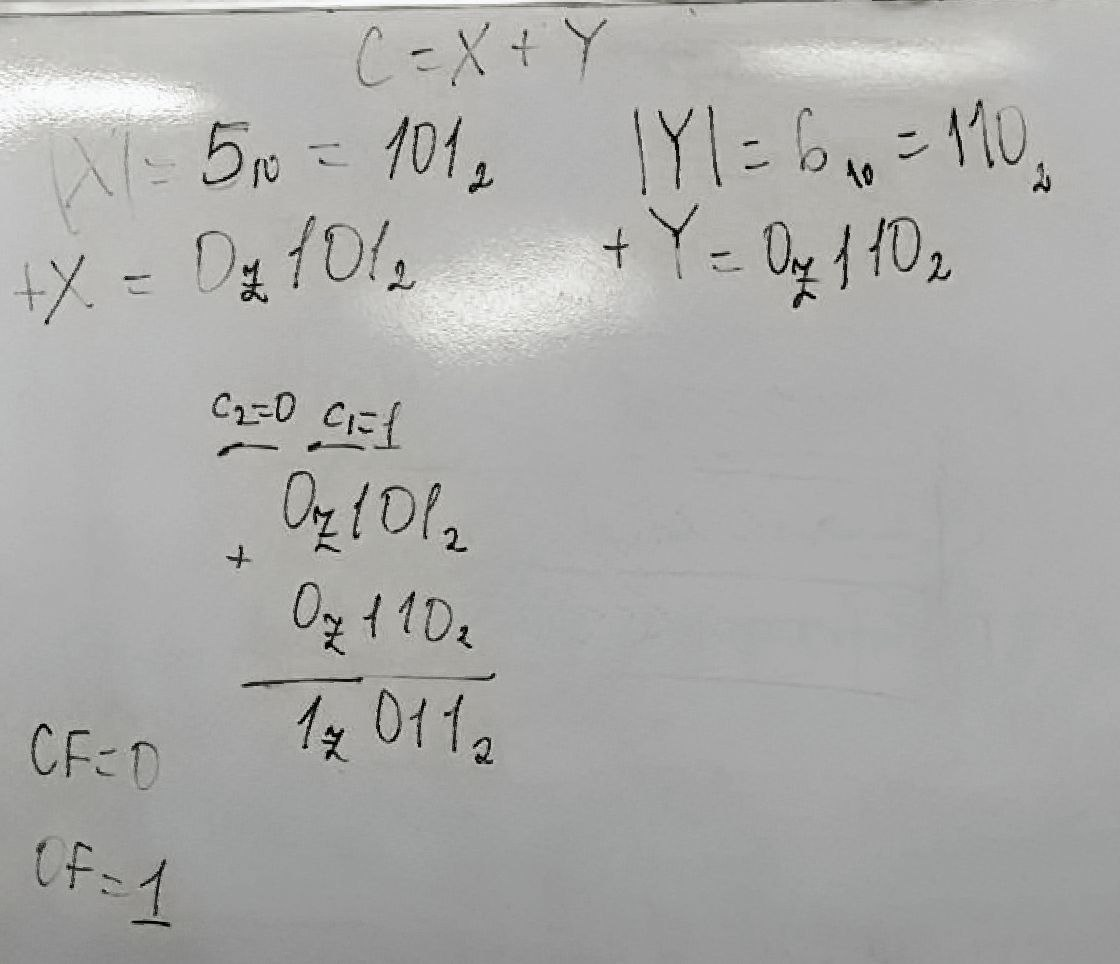 C = X + Y
|X| = 5₁₀ = 101₂ |Y| = 6₁₀ = 110₂
+X = 0z101₂ +Y = 0z110₂
c₂=0 c₁=1
0z101₂
+
0z110₂
1z011₂
CF=0
OF=1